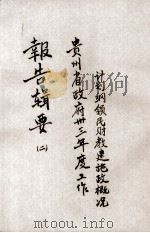 計劃綱領民財教建施政概況
貴州省政府卅三年度工作
報告輯要
(二)